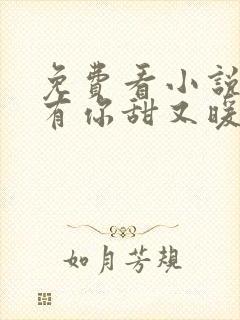 免費看小說
有你甜又暖
如月芳規